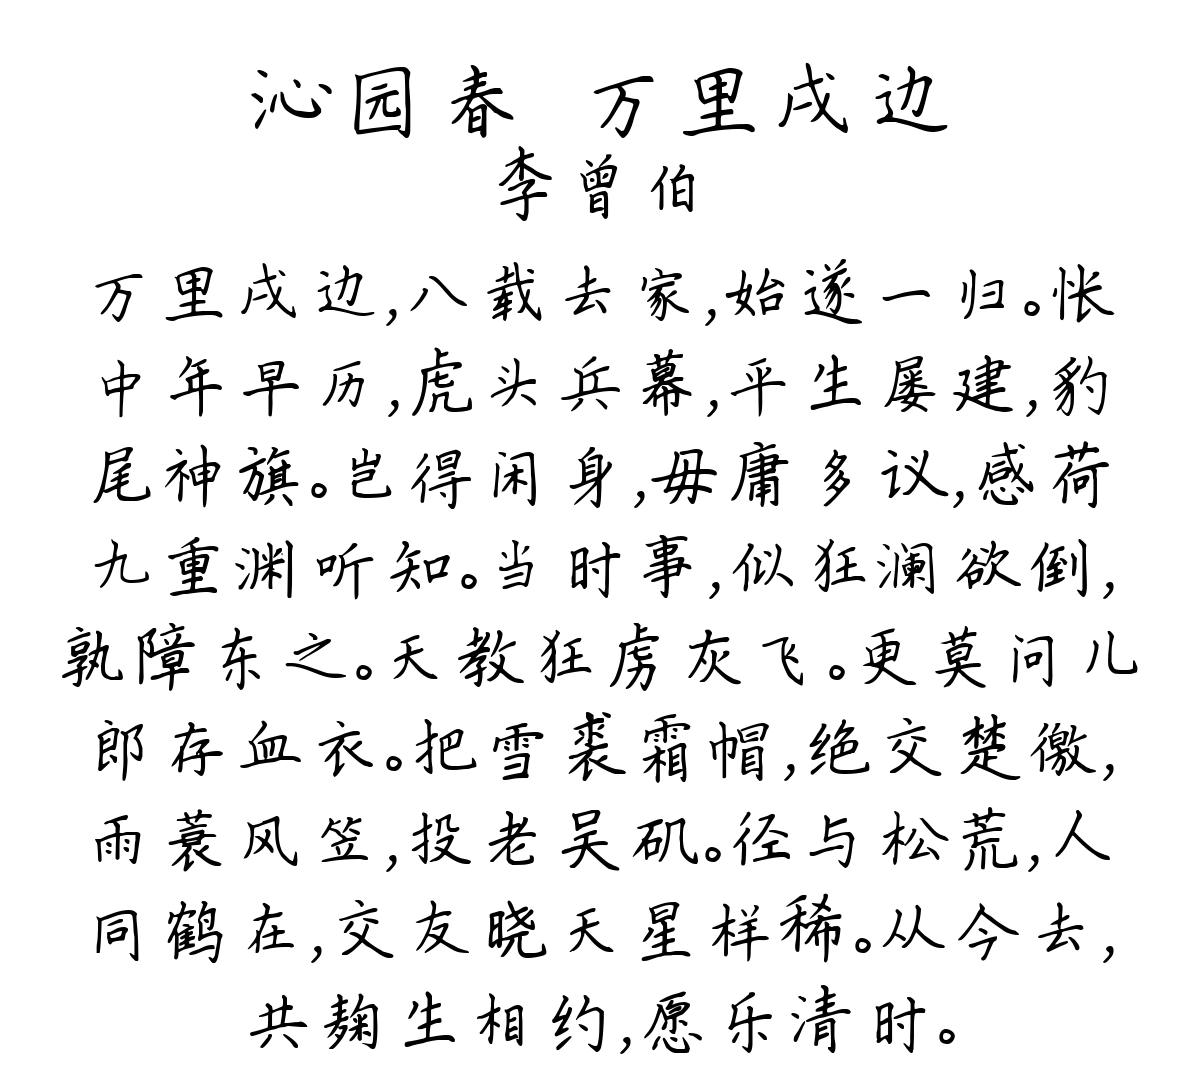 沁园春 万里戍边
李曾伯
万里戍边,八载去家,始遂一归。怅
中年早历,虎头兵幕,平生屡建,豹
尾神旗。岂得闲身,毋庸多议,感荷
九重渊听知。当时事,似狂澜欲倒,
孰障东之。天教狂虏灰飞。更莫问儿
郎存血衣。把雪裘霜帽,绝交楚徼,
雨蓑风笠,投老吴矶。径与松荒,人
同鹤在,交友晓天星样稀。从今去,
共麹生相约,愿乐清时。